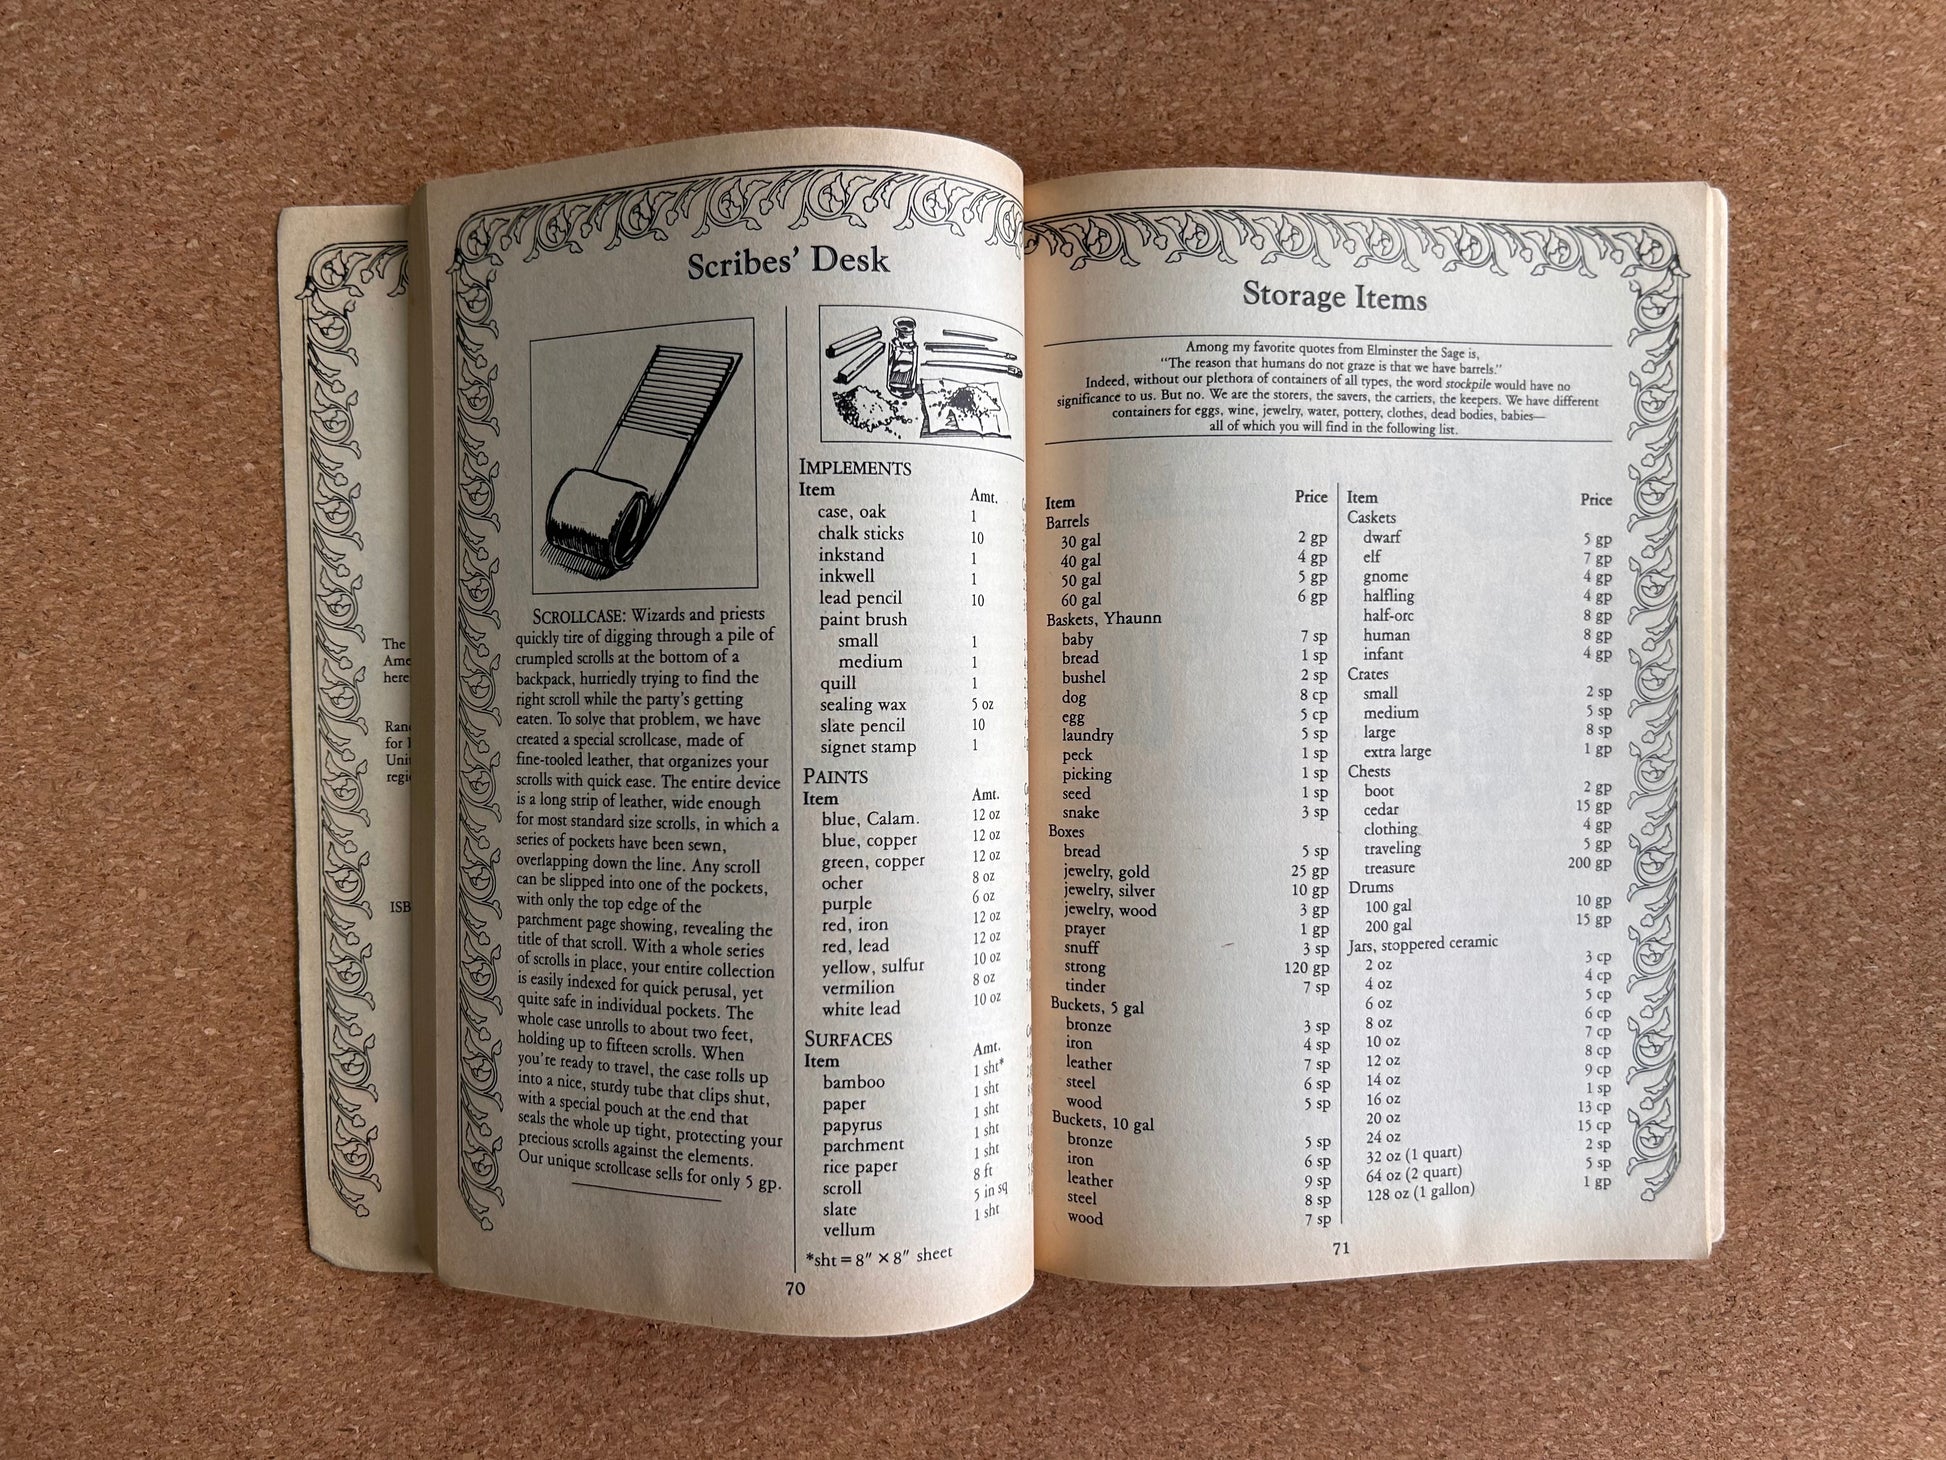 The
Ame
here
Ran
for
Uni
regi
ISB
Scribes' Desk
SCROLLCASE: Wizards and priests
quickly tire of digging through a pile of
crumpled scrolls at the bottom of a
backpack, hurriedly trying to find the
right scroll while the party's getting
eaten. To solve that problem, we have
created a special scrollcase, made of
fine-tooled leather, that organizes your
scrolls with quick ease. The entire device
is a long strip of leather, wide enough
for most standard size scrolls, in which a
series of pockets have been sewn,
overlapping down the line. Any scroll
can be slipped into one of the pockets,
with only the top edge of the
parchment page showing, revealing the
title of that scroll. With a whole series
of scrolls in place, your entire collection
is easily indexed for quick perusal, yet
quite safe in individual pockets. The
whole case unrolls to about two feet,
holding up to fifteen scrolls. When
you're ready to travel, the case rolls up
into a nice, sturdy tube that clips shut,
with a special pouch at the end that
seals the whole up tight, protecting your
precious scrolls against the elements.
Our unique scrollcase sells for only 5 gp.
IMPLEMENTS
Item Amt.
case, oak 1
chalk sticks 10
inkstand 1
inkwell 1
lead pencil 10
paint brush
small 1
medium 1
quill 1
sealing wax 5 oz
slate pencil 10
signet stamp 1
PAINTS
Item Amt.
blue, Calam. 12 oz
blue, copper 12 oz
green, copper 12 oz
ocher 8 oz
purple 6 oz
red, iron 12 oz
red, lead 12 oz
yellow, sulfur 10 oz
vermilion 8 oz
white lead 10 oz
SURFACES
Item Amt.
bamboo 1 sht*
paper 1 sht
papyrus 1 sht
parchment 1 sht
rice paper 1 sht
scroll 8 ft
slate 5 in sq
vellum 1 sht
*sht = 8" × 8" sheet
70
Storage Items
Among my favorite quotes from Elminster the Sage is,
"The reason that humans do not graze is that we have barrels."
Indeed, without our plethora of containers of all types, the word stockpile would have no
significance to us. But no. We are the storers, the savers, the carriers, the keepers. We have different
containers for eggs, wine, jewelry, water, pottery, clothes, dead bodies, babies—
all of which you will find in the following list.
Item Price
Barrels
30 gal 2 gp
40 gal 4 gp
50 gal 5 gp
60 gal 6 gp
Baskets, Yhaunn
baby 7 sp
bread 1 sp
bushel 2 sp
dog 8 cp
egg 5 cp
laundry 5 sp
peck 1 sp
picking 1 sp
seed 1 sp
snake 3 sp
Boxes
bread 5 sp
jewelry, gold 25 gp
jewelry, silver 10 gp
jewelry, wood 3 gp
prayer 1 gp
snuff 3 sp
strong 120 gp
tinder 7 sp
Buckets, 5 gal
bronze 3 sp
iron 4 sp
leather 7 sp
steel 6 sp
wood 5 sp
Buckets, 10 gal
bronze 5 sp
iron 6 sp
leather 9 sp
steel 8 sp
wood 7 sp
Item Price
Caskets
dwarf 5 gp
elf 7 gp
gnome 4 gp
halfling 4 gp
half-orc 8 gp
human 8 gp
infant 4 gp
Crates
small 2 sp
medium 5 sp
large 8 sp
extra large 1 gp
Chests
boot 2 gp
cedar 15 gp
clothing 4 gp
traveling 5 gp
treasure 200 gp
Drums
100 gal 10 gp
200 gal 15 gp
Jars, stoppered ceramic
2 oz 3 cp
4 oz 4 cp
6 oz 5 cp
8 oz 6 cp
10 oz 7 cp
12 oz 8 cp
14 oz 9 cp
16 oz 1 sp
20 oz 13 cp
24 oz 15 cp
32 oz (1 quart) 2 sp
64 oz (2 quart) 5 sp
128 oz (1 gallon) 1 gp
71